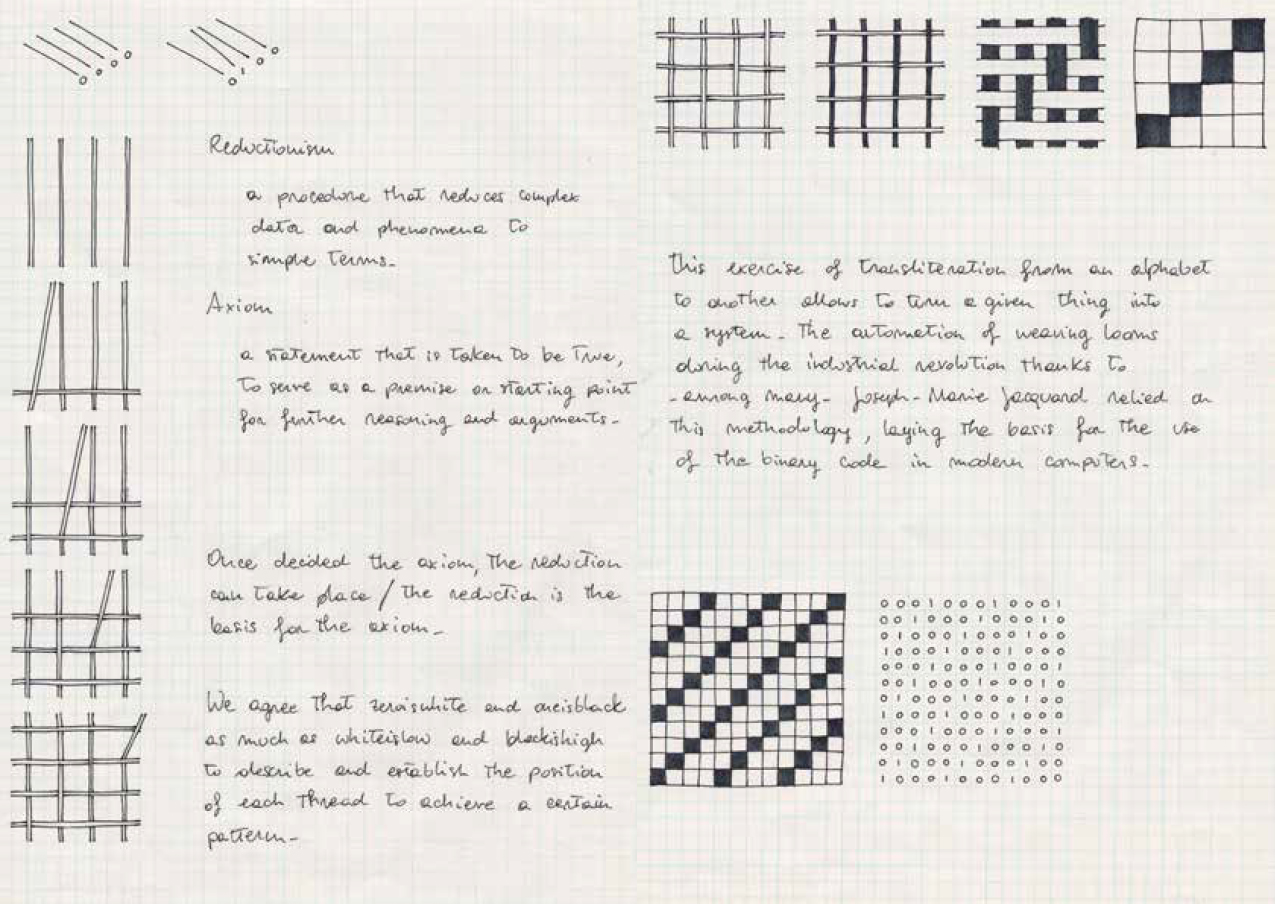 0 0 0 0
0 1 0 0
Reductionism
a procedure that reduces complex
data and phenomena to
simple terms_
Axiom
a statement that is taken to be true,
to serve as a premise or starting point
for further reasoning and arguments_
Once decided the axiom, the reduction
can take place / the reduction is the
basis for the axiom_
We agree that zeroiswhite and oneisblack
as much as whiteislow and blackishigh
to describe and establish the position
of each thread to achieve a certain
pattern_
This exercise of transliteration from an alphabet
to another allows to turn a given thing into
a system_ The automation of weaving looms
during the industrial revolution thanks to
_among many_ Joseph-Marie Jacquard relied on
this methodology, laying the basis for the use
of the binary code in modern computers_
0 0 0 1 0 0 0 1 0 0 0 1
0 0 1 0 0 0 1 0 0 0 1 0
0 1 0 0 0 1 0 0 0 1 0 0
1 0 0 0 1 0 0 0 1 0 0 0
0 0 0 1 0 0 0 1 0 0 0 1
0 0 1 0 0 0 1 0 0 0 1 0
0 1 0 0 0 1 0 0 0 1 0 0
1 0 0 0 1 0 0 0 1 0 0 0
0 0 0 1 0 0 0 1 0 0 0 1
0 0 1 0 0 0 1 0 0 0 1 0
0 1 0 0 0 1 0 0 0 1 0 0
1 0 0 0 1 0 0 0 1 0 0 0